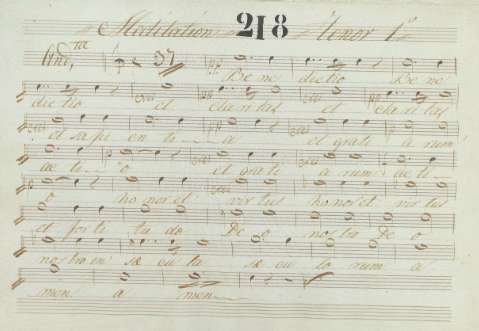 Meditation 218 Tenor 1º
And.te 37 Be ne dictio Be ne
dictio et claritas et claritas
et sapi en ti a et grati a rum
ac ti o et grati a rum ac ti
o ho nor et virtus honor et virtus
et for ti tu do De o nos tro De o
nostro in sæ cu la sæ cu lo rum a
men a men